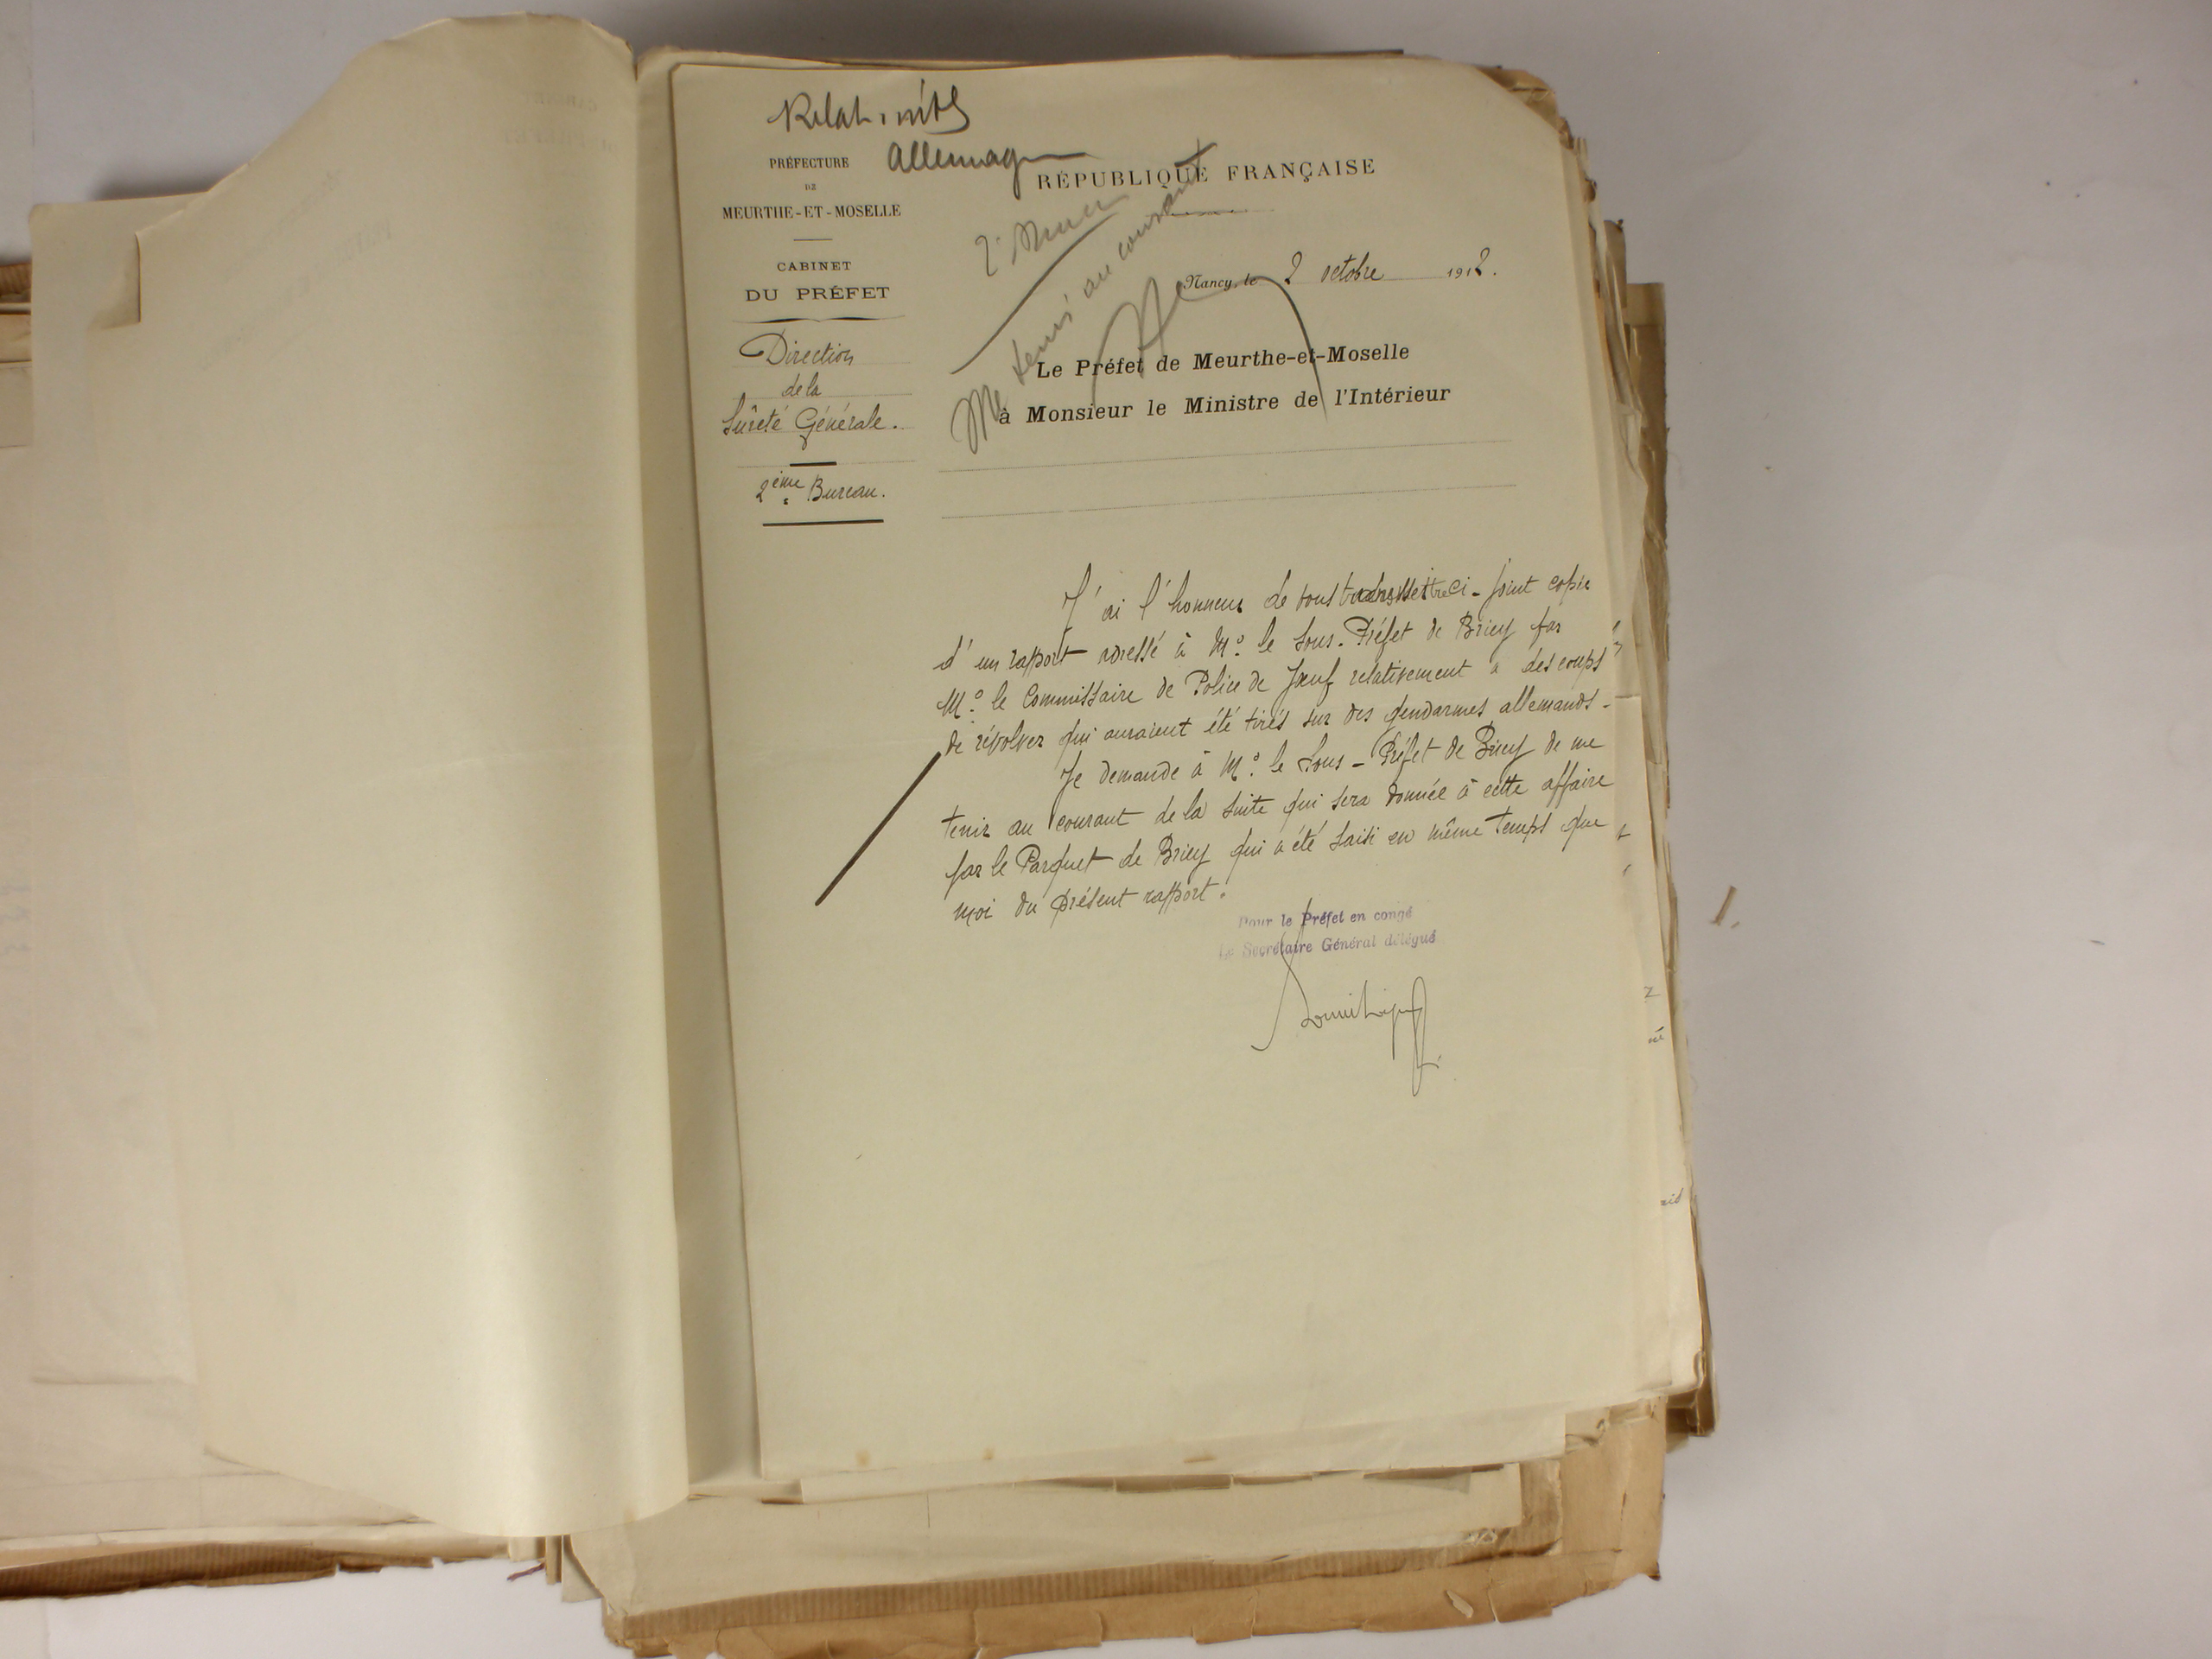 Relations
Allemagne
PRÉFECTURE
DE
MEURTHE-ET-MOSELLE
CABINET
DU PRÉFET
Direction
de la
Sûreté Générale.
2ème Bureau.
RÉPUBLIQUE FRANÇAISE
Me tenir au courant
Nancy, le 2 octobre 1912.
Le Préfet de Meurthe-et-Moselle
à Monsieur le Ministre de l'Intérieur
J'ai l'honneur de vous transmettre ci-joint copie
d'un rapport adressé à M. le Sous-Préfet de Briey par
M. le Commissaire de Police de Jœuf relativement à des coups
de révolver qui auraient été tirés sur des gendarmes allemands.
Je demande à M. le Sous-Préfet de Briey de me
tenir au courant de la suite qui sera donnée à cette affaire
par le Parquet de Briey qui a été saisi en même temps que
moi du présent rapport.
Pour le Préfet en congé
Le Secrétaire Général délégué